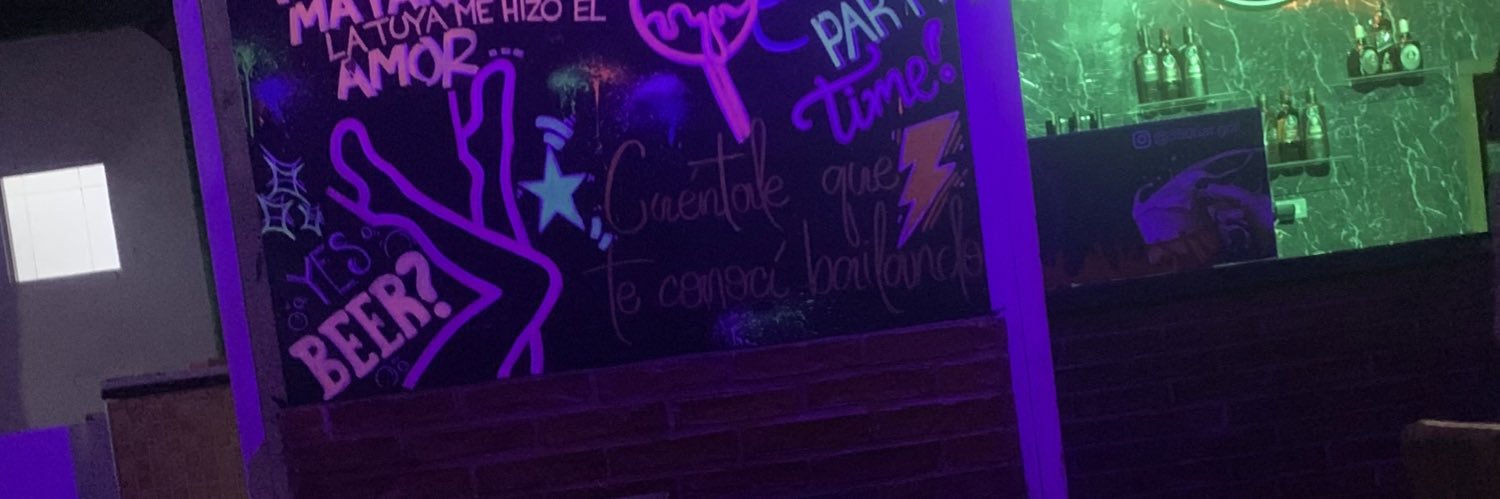 LA TUYA ME HIZO EL
AMOR...
PARTY
Time!
Cuéntale que
te conocí bailando
YES
BEER?